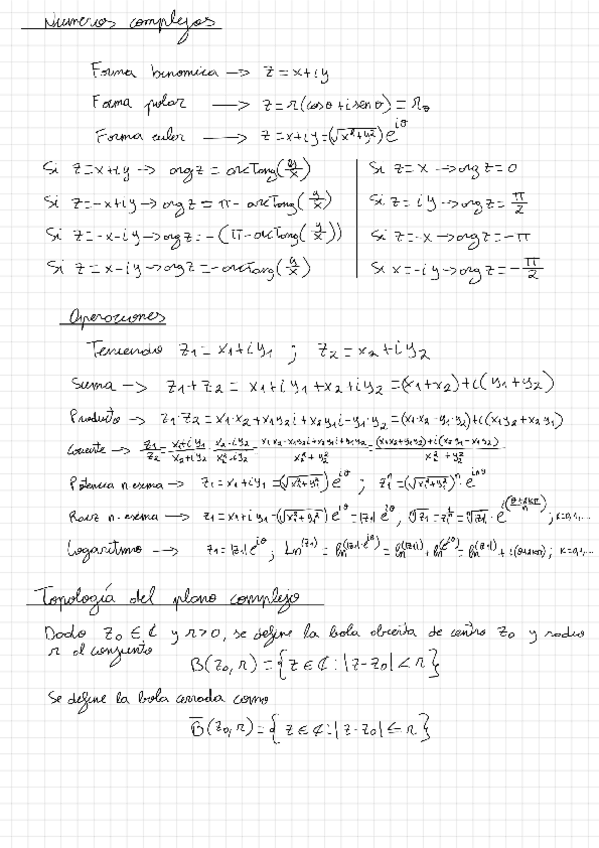 Números complejos
Forma binomica --> z = x+iy
Forma polar --> z = r(cosθ+i senθ) = r_θ
Forma euler --> z = x+iy = (√x²+y²) e^{iθ}
Si z=x+iy -> arg z = arcTang(y/x)
Si z=-x+iy -> arg z = π - arcTang(y/x)
Si z=-x-iy -> arg z = -(π-arcTang(y/x))
Si z=x-iy -> arg z = -arcTang(y/x)
Si z=x -> arg z=0
Si z=iy -> arg z=π/2
Si z=-x -> arg z=-π
Si x=-iy -> arg z=-π/2
Operaciones
Teniendo z₁=x₁+iy₁ ; z₂=x₂+iy₂
Suma -> z₁+z₂ = x₁+iy₁+x₂+iy₂ =(x₁+x₂)+i(y₁+y₂)
Producto -> z₁·z₂ = x₁·x₂+x₁y₂i+x₂y₁i-y₁·y₂ =(x₁·x₂-y₁·y₂)+i(x₁y₂+x₂y₁)
Cociente -> z₁/z₂ = x₁+iy₁/x₂+iy₂ · x₂-iy₂/x₂-iy₂ = x₁x₂-x₁y₂i+x₂y₁i+y₁y₂/x₂²+y₂² = (x₁x₂+y₁y₂)+i(x₂y₁-x₁y₂)/x₂²+y₂²
Potencia n esima -> z₁=x₁+iy₁ =(√x₁²+y₁²) e^{iθ} ; z₁ⁿ=(√x₁²+y₁²)ⁿ e^{inθ}
Raiz n-esima -> z₁=x₁+iy₁=(√x₁²+y₁²) e^{iθ}=|z₁| e^{iθ}, ⁿ√z₁=z₁^{1/n}=ⁿ√|z₁| · e^{i(θ+2kπ/n)} ; k=0,1,...
Logaritmo -> z₁=|z₁|e^{iθ} ; Ln^{(z₁)} = ln^{(|z₁|·e^{iθ})} = ln^{(|z₁|)}+ln^{(e^{iθ})} = ln^{(|z₁|)}+i(θ+2kπ) ; k=0,1,...
Topología del plano complejo
Dado z₀ ∈ ℂ y r>0, se define la bola abierta de centro z₀ y radio
r al conjunto
B(z₀,r) = {z∈ℂ:|z-z₀|<r}
Se define la bola cerrada como
B̅(z₀,r)={z∈ℂ:|z-z₀|≤r}